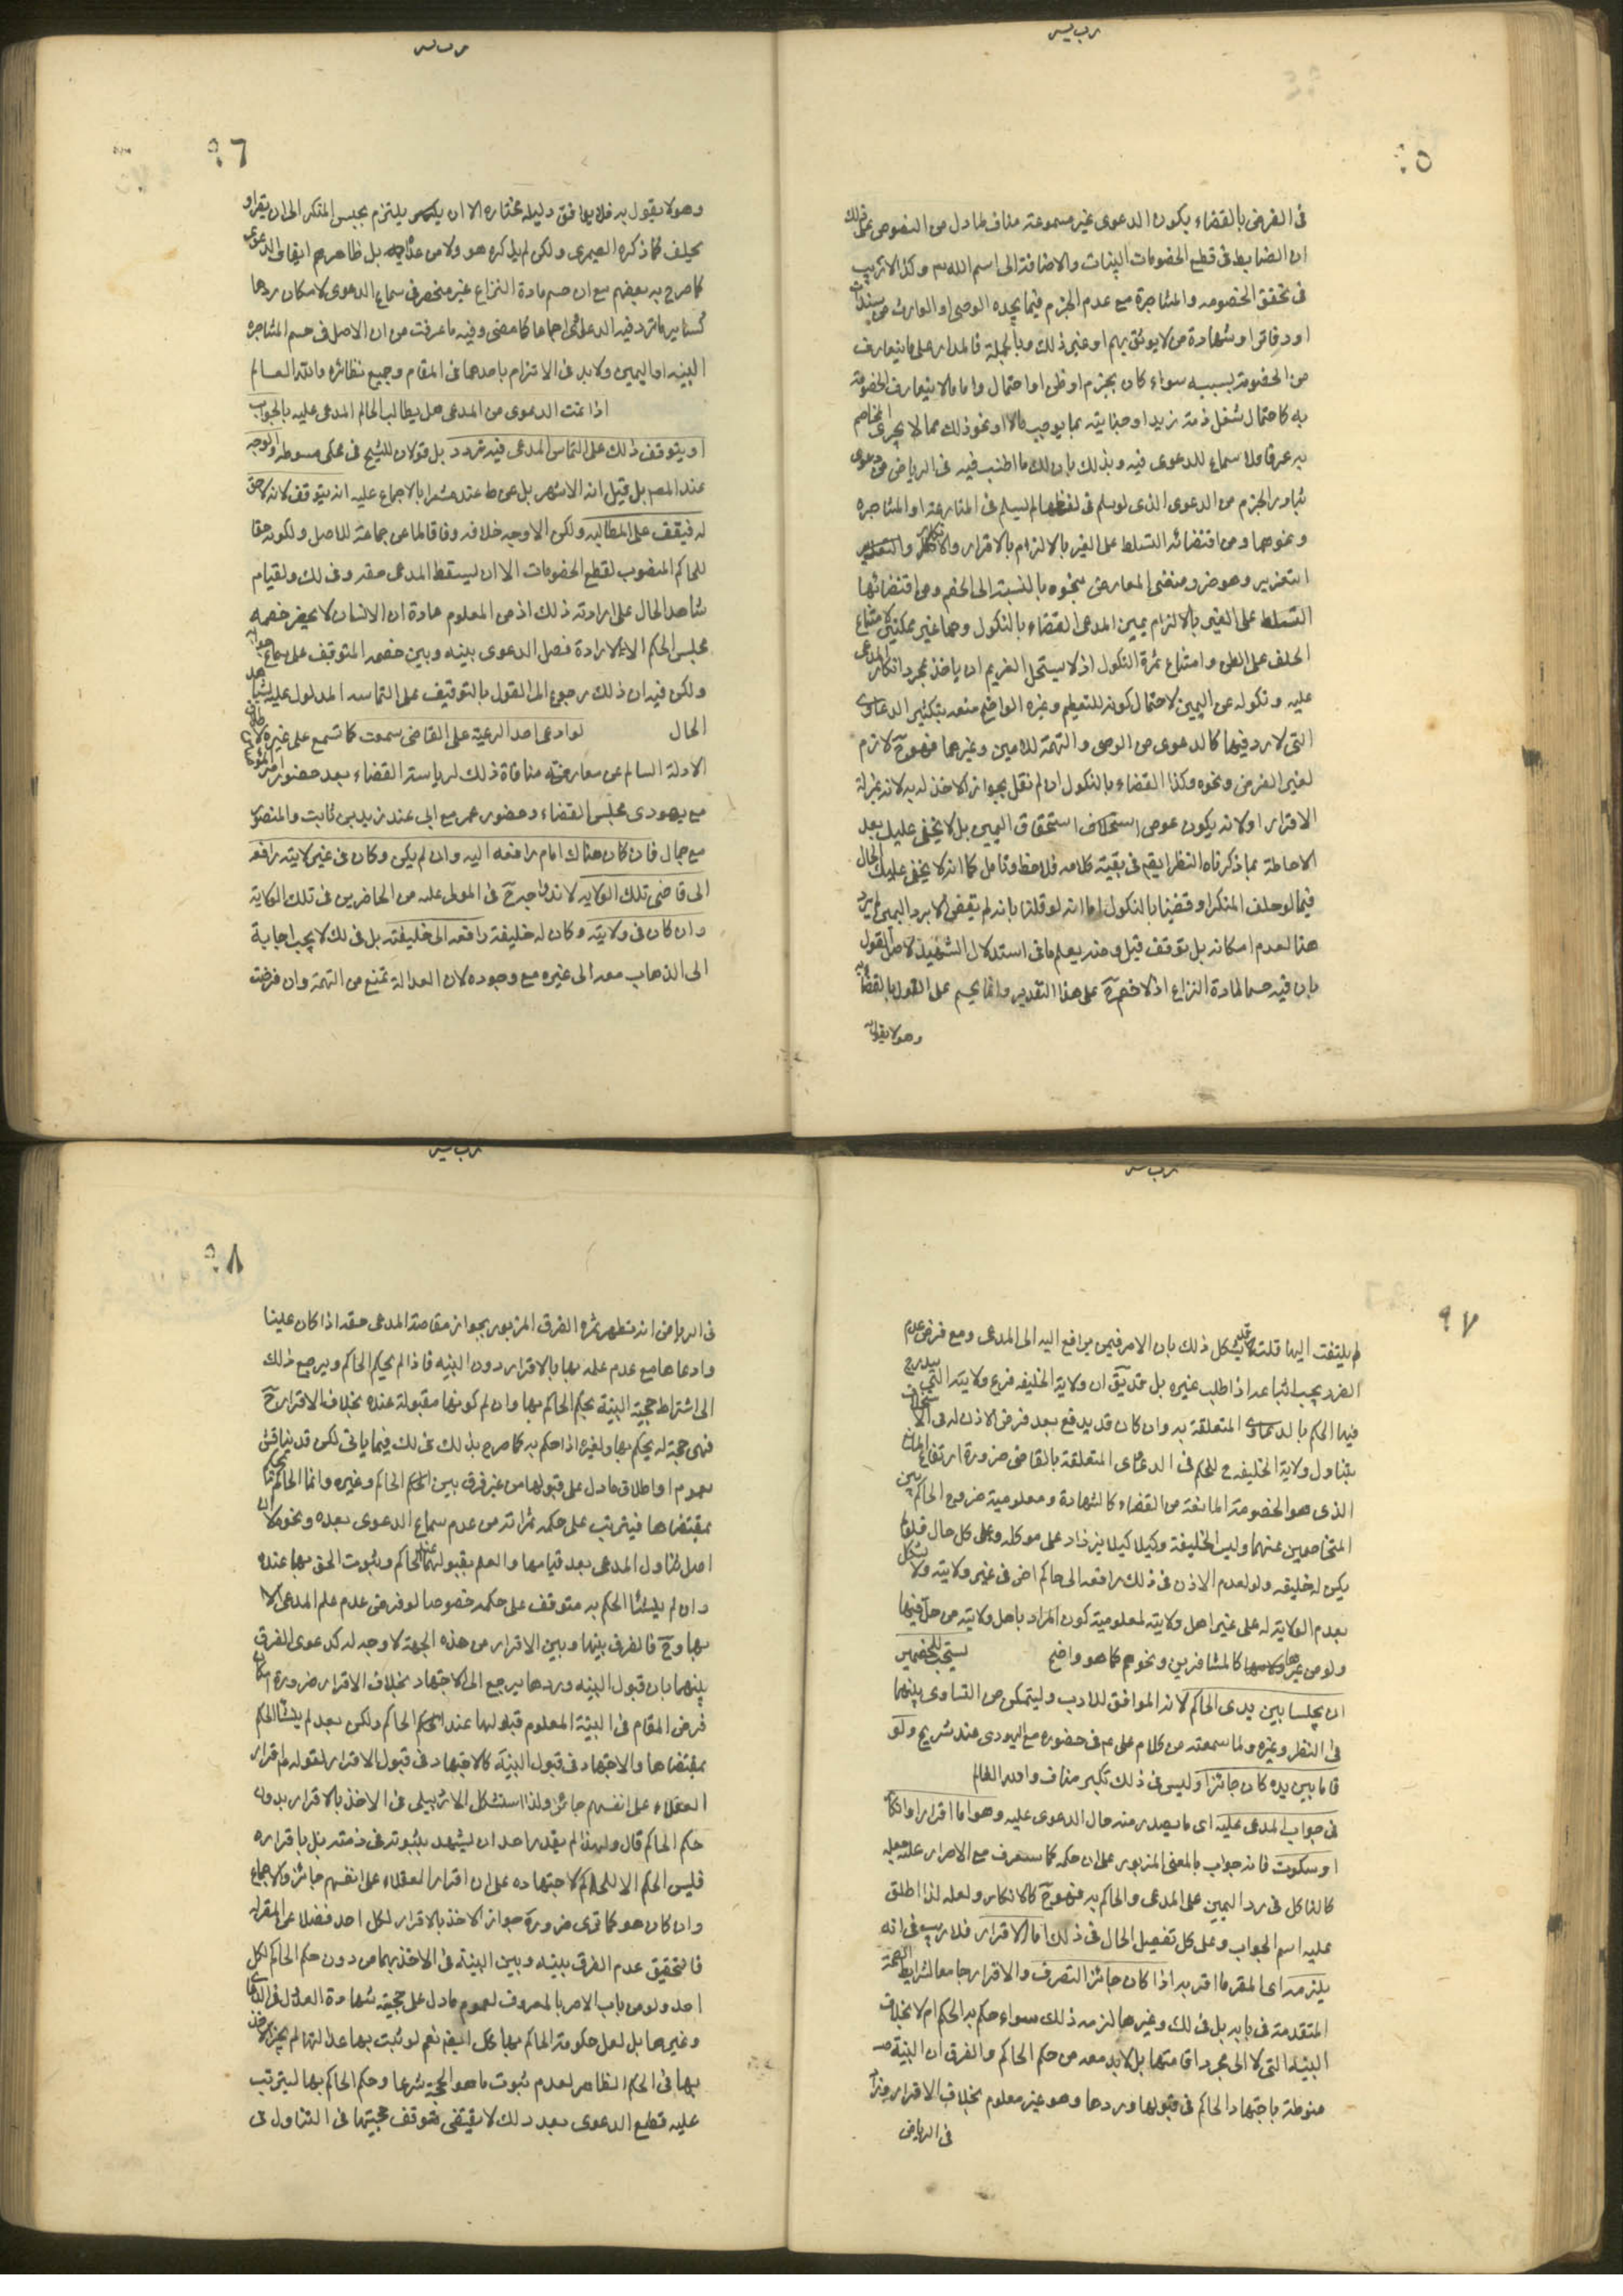 في الفرض بالقضاء يكون الدعوى غير مسموعة مناف لما دل من النصوص على
ان الضابط في قطع الخصومات البينات والاضافة الى اسم الله وكذا لا ريب
في تحقق الخصومه والمشاجرة مع عدم الجزم فيما يجده الوصى او الوارث من سندات
او دفاتر او شهادة من لا يوثق بهم او غير ذلك وبالجملة فالمدار على ما يتعارف
من الخصومة بسببه سواء كان بجزم او ظن او احتمال واما ما لا يتعارف الخصومة
به كاحتمال شغل ذمة زيد او جنايته بما يوجب مالا او نحو ذلك مما لا يجرى التخاصم
به عرفا فلا سماع للدعوى فيه وبذلك بان لك ما اطنب فيه في الرياض من دعوى
تبادر الجزم من الدعوى الذى لو سلم في لفظها لم يسلم في المنازعة او المشاجره
ونحوهما ومن اقتضائه التسلط على الغير بالالزام بالاقرار والانكار
التغرير وهو ضرر منفى المعارض بنحوه بالنسبة الى الخصم ومن اقتضائها
التسلط على الغير بالالزام بيمين المدعى القضاء بالنكول وهما غير ممكنين لامتناع
الحلف على الظن وامتناع ثمرة النكول اذ لا يستحل الغريم ان ياخذ بمجرد انكار المدعى
عليه ونكوله عن اليمين لاحتمال كونه للتعظيم وغيره الواضح منعه بتكثير الدعاوى
التي لا رد فيها كالدعوى من الوصى والتهمة للامين وغيرهما فهو ح لازم
لغير الفرض ونحوه وكذا القضاء بالنكول ان لم نقل بجواز الاخذ له به لانه بمنزلة
الاقرار او لانه يكون عوض استحقاق اليمين بل لا يخفى عليك بعد
الاحاطة بما ذكرناه النظر ايضم في بقية كلامه فلاحظ وتامل كما انه لا يخفى عليك الحال
فيما لو حلف المنكر او قضينا بالنكول اما انه لو قلنا بانه لم يقض الا برد اليمين لم يرد
هنا لعدم امكانه بل توقف قيل ومنه يعلم ما في استدلال الشهيد لاصل القول
بان فيه حسما لمادة النزاع اذ لا خصم على هذا التقدير وانما يحسم على القول بالقضاء
وهو لا يقول به
٩٦
وهو لا يقول به فلا يوافق دليله مختاره الا ان يلتزم بحبس المنكر الى ان يقر او
يحلف كما ذكره الصيمرى ولكن لم يذكره هو ولا من عداه بل ظاهرهم ايقاف الدعوى
كما صرح به بعضهم مع ان حسم مادة النزاع غير منحصر في سماع الدعوى لامكان ردها
كسائر ما ترد فيه الدعاوى اجماعا كما مضى وفيه ما عرفت من ان الاصل في حسم المشاجره
البينه او اليمين ولا بد في الالتزام باحدهما في المقام وجميع نظائره والله العالم
اذا تمت الدعوى من المدعى هل يطالب الحاكم المدعى عليه بالجواب
او يتوقف ذلك على التماس المدعى فيه تردد بل قولان للشيخ في محكى مبسوطه والوجه
عند المصم بل قيل انه الاشهر بل عن ط عندنا مشعرا بالاجماع عليه انه يتوقف لانه حق
له فيقف على المطالبه ولكن الاوجه خلافه وفاقا لما عن جماعة للاصل ولكونه حقا
للحاكم المنصوب لقطع الخصومات الا ان يسقط المدعى حقه وفي لك ولقيام
شاهد الحال على ارادته ذلك اذ من المعلوم عادة ان الانسان لا يحضر خصمه
مجلس الحكم الا لارادة فصل الدعوى بينه وبين خصمه المتوقف على سماع جوابه
ولكن فيه ان ذلك رجوع الى القول بالتوقيف على التماسه المدلول عليه بشاهد
الحال لو ادعى احد الرعية على القاضى سمعت كما تسمع على غيره
الادلة السالم عن معارضته منافاة ذلك لرياسة القضاء بعد حضور امير المؤمنين
مع يهودى مجلس القضاء وحضور عمر مع ابى عند زيد بن ثابت والمنصور
مع جمال فان كان هناك امام رافعه اليه وان لم يكن وكان في غير ولايته رافعه
الى قاضى تلك الولايه لاندراجه ح في المولى عليه من الحاضرين في تلك الولاية
وان كان في ولايته وكان له خليفة رافعه الى خليفته بل في لك لا يجب اجابة
الى الذهاب معه الى غيره مع وجوده لان العدالة تمنع من التهمة وان فرضت
٩٧
لم يلتفت اليها قلت قد يشكل ذلك بان الامر فيمن يرافع اليه الى المدعى ومع فرض عدم
الضرر يجب اتباعه اذا طلب غيره بل قد يق ان ولاية الخليفه فرع ولايته التي يندرج
فيها الحكم بالدعاوى المتعلقة به وان كان قد يدفع بعد فرض الاذن له في الاستخلاف
بتناول ولاية الخليفه ح للحكم في الدعاوى المتعلقة بالقاضى ضرورة ارتفاع المانع
الذى هو الخصومة المانعة من القضاء كالشهادة ومعلومية خروج الحاكم بين
المتخاصمين عنهما وليس الخليفة وكيلا كيلا يزداد على موكله وعلى كل حال فان لم
يكن له خليفه ولو لعدم الاذن في ذلك رافعه الى حاكم اخر في غير ولايته ولا يشكل
بعدم الولاية له على غير اهل ولايته لمعلومية كون المراد باهل ولايته من حل فيها
ولو من غيرها كالمسافرين ونحوهم كما هو واضح يستحب للخصمين
ان يجلسا بين يدى الحاكم لانه الموافق للادب وليتمكن من التساوى بينهما
في النظر وغيره ولما سمعته من كلام على ع في حضوره مع اليهودى عند شريح ولو
قاما بين يديه كان جائزا وليس في ذلك تكبر مناف والله العالم
في جواب المدعى عليه اى ما يصدر منه حال الدعوى عليه وهو اما اقرار او انكار
او سكوت فانه جواب بالمعنى المزبور على ان حكمه كما ستعرف مع الاصرار عليه جعله
كالناكل في رد اليمين على المدعى والحاكم به فهو ح كالانكار ولعله لذا اطلق
عليه اسم الجواب وعلى كل تفصيل الحال في ذلك اما الاقرار فلا ريب في انه
يلزمه اى المقر ما اقر به اذا كان جائز التصرف والاقرار جامعا لشرايط الصحة
المتقدمة في بابه بل في لك وغيرها لزمه ذلك سواء حكم به الحاكم ام لا بخلاف
البينة التي لا الى مجرد اقامتها بل لا بد معه من حكم الحاكم والفرق ان البينة
منوطة باجتهاد الحاكم في قبولها وردها وهو غير معلوم بخلاف الاقرار وزاد
في الرياض
٩٨
في الرياض انه تظهر ثمرة الفرق المزبور بجواز مقاصة المدعى حقه اذا كان عينا
وادعاها مع عدم علمه بها بالاقرار دون البينه فاذا لم يحكم الحاكم ويرجع ذلك
الى اشتراط حجية البينة بحكم الحاكم بها وان لم كونها مقبولة عنده بخلاف الاقرار ح
فهي حجة له يحكم بها ولغيره اذا حكم به كما صرح بذلك في لك فيما ياتى لكن قد يناقش
بعموم او اطلاق ما دل على قبولها من غير فرق بين الحاكم وغيره وانما الحاكم يحكم
بمقتضاها فيترتب على حكمه ثمراته من عدم سماع الدعوى بعده ونحوه
اصل تناول المدعى بعد قيامها والعلم بقبولها عند الحاكم وثبوت الحق بها عنده
وان لم ينشئ الحكم به متوقف على حكمه خصوصا لو فرض عدم علم المدعى الا
بها وح فالفرق بينها وبين الاقرار من هذه الجهة لا وجه له كدعوى الفرق
بينهما بان قبول البينه وردها يرجع الى الاجتهاد بخلاف الاقرار ضرورة امكان
فرض المقام في البينة المعلوم قبولها عند الحاكم ولكن بعد لم ينشئ الحكم
بمقتضاها والاجتهاد في قبول البينة كالاجتهاد في قبول الاقرار لقوله ع اقرار
العقلاء على انفسهم جائز ولذا استشكل الاردبيلى في الاخذ بالاقرار بدون
حكم الحاكم قال ولهذا لم يقدر احد ان يشهد بثبوته في ذمته بل باقراره
فليس الحكم الا للحاكم لاجتهاده على ان اقرار العقلاء على انفسهم جائز والاجماع
وان كان هو كما ترى ضرورة جواز الاخذ بالاقرار لكل احد فضلا عن المقر له
فالتحقيق عدم الفرق بينه وبين البينة في الاخذ بهما من دون حكم الحاكم لكل
احد ولو من باب الامر بالمعروف لعموم ما دل على حجية شهادة العدل في الدعاوى
وغيرها بل لعل حكومة الحاكم بها محل ايضم نعم لو ثبت بها عدالتها لم يجز الاخذ
بها في الحكم الظاهر لعدم ثبوت ما هو الحجة شرعا وحكم الحاكم بها ليترتب
عليه قطع الدعوى بعد ذلك لا يقتضى توقف حجيتها في التناول في